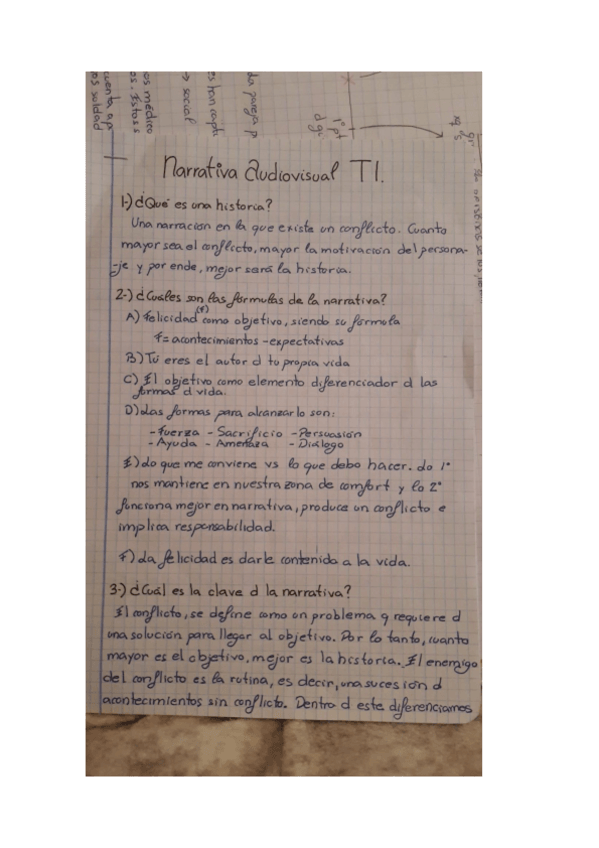 cuenta ap
os soldad
os médico
os. Estos s
es han capti
→ social
da pareja p
1º pt
d gi
Narrativa audiovisual T1.
1-) ¿Qué es una historia?
Una narración en la que existe un conflicto. Cuanto
mayor sea el conflicto, mayor la motivación del persona-
-je y por ende, mejor será la historia.
2-) ¿Cuáles son las fórmulas de la narrativa?
A) Felicidad (F) como objetivo, siendo su fórmula
F = acontecimientos - expectativas
B) Tú eres el autor d tu propia vida
C) El objetivo como elemento diferenciador d las
formas d vida.
D) Las formas para alcanzarlo son:
- Fuerza - Sacrificio - Persuasión
- Ayuda - Amenaza - Diálogo
E) Lo que me conviene vs lo que debo hacer. Lo 1º
nos mantiene en nuestra zona de comfort y lo 2º
funciona mejor en narrativa, produce un conflicto e
implica responsabilidad.
F) La felicidad es darle contenido a la vida.
3-) ¿Cuál es la clave d la narrativa?
El conflicto, se define como un problema q requiere d
una solución para llegar al objetivo. Por lo tanto, cuanto
mayor es el objetivo, mejor es la historia. El enemigo
del conflicto es la rutina, es decir, una sucesión d
acontecimientos sin conflicto. Dentro d este diferenciamos